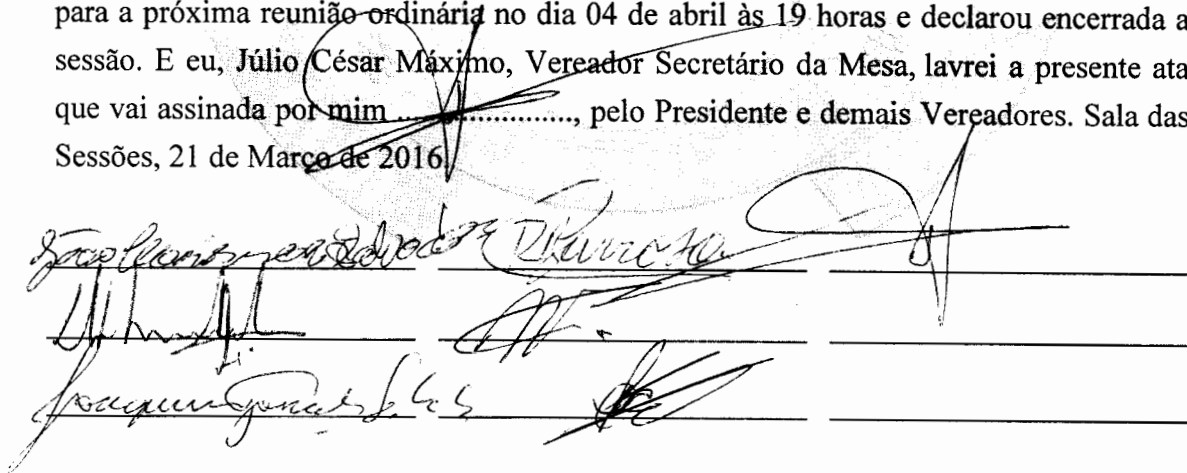 para a próxima reunião ordinária no dia 04 de abril às 19 horas e declarou encerrada a
sessão. E eu, Júlio César Máximo, Vereador Secretário da Mesa, lavrei a presente ata
que vai assinada por mim ......................, pelo Presidente e demais Vereadores. Sala das
Sessões, 21 de Março de 2016.
Joaquim